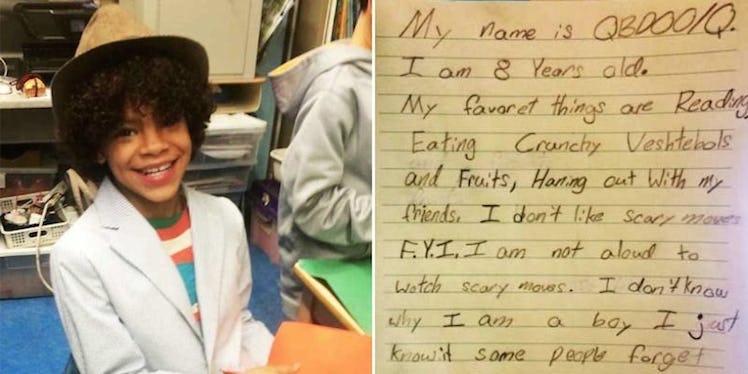 My name is QBDOO/Q.
I am 8 Years old.
My favoret things are Reading,
Eating Crunchy Veshtebols
and Fruits, Haning out With my
friends. I don't like scary moves
F.Y.I. I am not aloud to
Watch scary moves. I don't know
why I am a boy I just
know'it some people forget